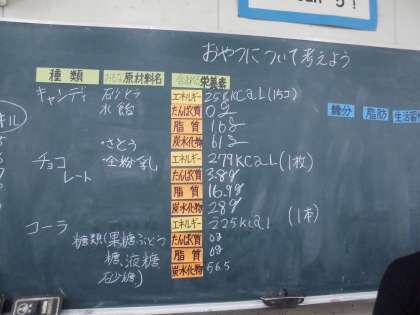 おやつについて考えよう
種類 おもな原材料名 含まれる栄養素
キャンディ 砂とう エネルギー 256KCaL(15コ)
水飴 たんぱく質 0g
脂質 16g
さとう 炭水化物 61g
チョコレート 全粉乳 エネルギー 279KCaL(1枚)
たんぱく質 3.8g
脂質 16.9g
炭水化物 28g
コーラ エネルギー 225Kcal (1本)
糖類(果糖ぶどう たんぱく質 0g
糖、液糖 脂質 0g
砂糖) 炭水化物 56.5
糖分 脂肪 生活習慣